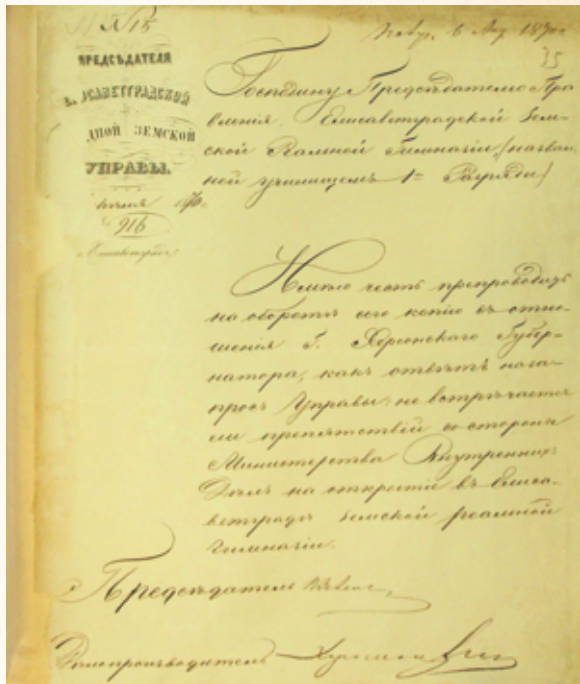 № 15
6 1870
35
ПРЕДСѢДАТЕЛЯ
ИСАВЕТГРАДСКОЙ
ДНОЙ ЗЕМСКОЙ
УПРАВЫ.
1870.
916
Господину Предсѣдателю Пра
вленія Елисаветградской Зем-
ской Реальной Гимназіи, (назван
ной училищемъ 1го Разряда)
Имѣю честь препроводить
на оборотѣ сего копію съ отно-
шенія Г. Херсонскаго Губер-
натора, какъ отвѣтъ на за-
просъ Управы: не встрѣчается
ли препятствій со стороны
Министерства Внутреннихъ
Дѣлъ на открытіе въ Елиса-
ветградѣ Земской реальной
гимназіи.
Предсѣдатель
Дѣлопроизводитель